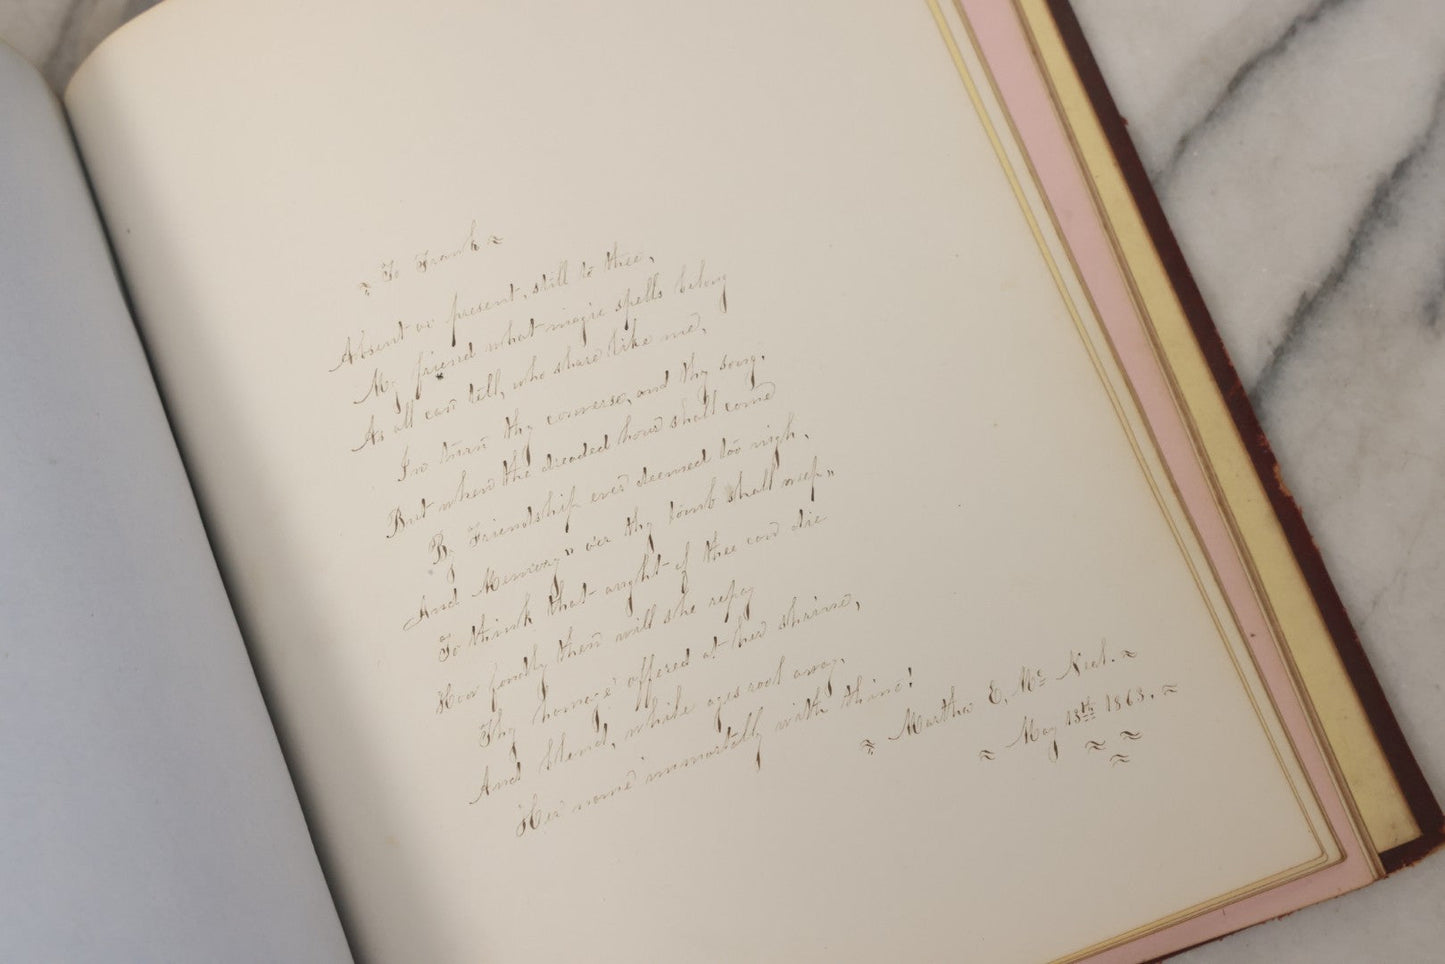 To Frank
Absent or present, still to thee,
My friend what magic spells belong
As all can tell, who share like me,
In turn thy converse, and thy song.
But when the dreaded hour shall come
By Friendship ever deemed too nigh,
And "Memory" o'er thy tomb shall weep"
To think that aught of thee can die
How fondly then will she repay
Thy homage offered at her shrine,
And blend, while ages roll away,
Her name immortally with thine!
Martha E. Mc Niel.
May 18th 1863.